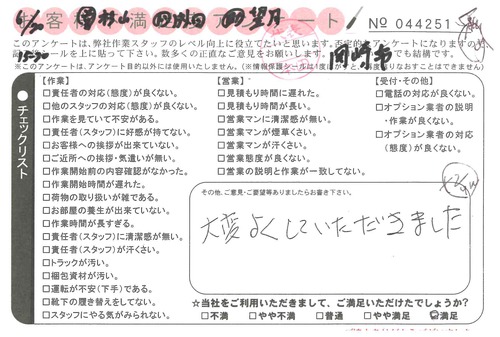 お客様不満足アンケート
No 044251
このアンケートは、弊社作業スタッフのレベル向上に役立てたいと思います。否定的なアンケートになりますの
シールを上に貼って下さい。数多くの正直なご意見をお願いします。
※このアンケートは、アンケート目的以外には使用いたしません。
岡崎市
チェックリスト
【作業】
□責任者の対応(態度)が良くない。
□他のスタッフの対応(態度)が良くない。
□作業を見ていて不安がある。
□責任者(スタッフ)に好感が持てない。
□お客様への挨拶が出来ていない。
□ご近所への挨拶・気遣いが無い。
□作業開始前の内容確認がなかった。
□作業開始時間が遅れた。
□荷物の取り扱いが雑である。
□お部屋の養生が出来ていない。
□作業時間が長すぎる。
□責任者(スタッフ)に清潔感が無い。
□責任者(スタッフ)が汗くさい。
□トラックが汚い。
□梱包資材が汚い。
□運転が不安(下手)である。
□靴下の履き替えをしてない。
□スタッフにやる気がみられない。
【営業】
□見積もり時間に遅れた。
□見積もり時間が長い。
□営業マンに清潔感が無い。
□営業マンが煙草くさい。
□営業マンが汗くさい。
□営業態度が良くない。
□営業の説明と作業が一致してない。
【受付・その他】
□電話の対応が良くない。
□オプション業者の説明
・作業が良くない。
□オプション業者の対応
(態度)が良くない。
その他、ご意見・ご要望等ありましたらお書き下さい。
大変よくしていただきました
☆当社をご利用いただきまして、ご満足いただけたでしょうか?
□不満 □やや不満 □普通 □やや満足 □満足